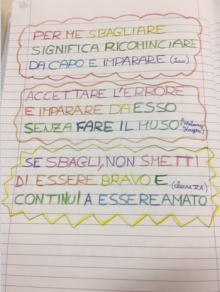 PER ME SBAGLIARE
SIGNIFICA RICOMINCIARE
DA CAPO E IMPARARE
ACCETTARE L'ERRORE
E IMPARARE DA ESSO
SENZA FARE IL MUSO
SE SBAGLI, NON SMETTI
DI ESSERE BRAVO E
CONTINUI A ESSERE AMATO